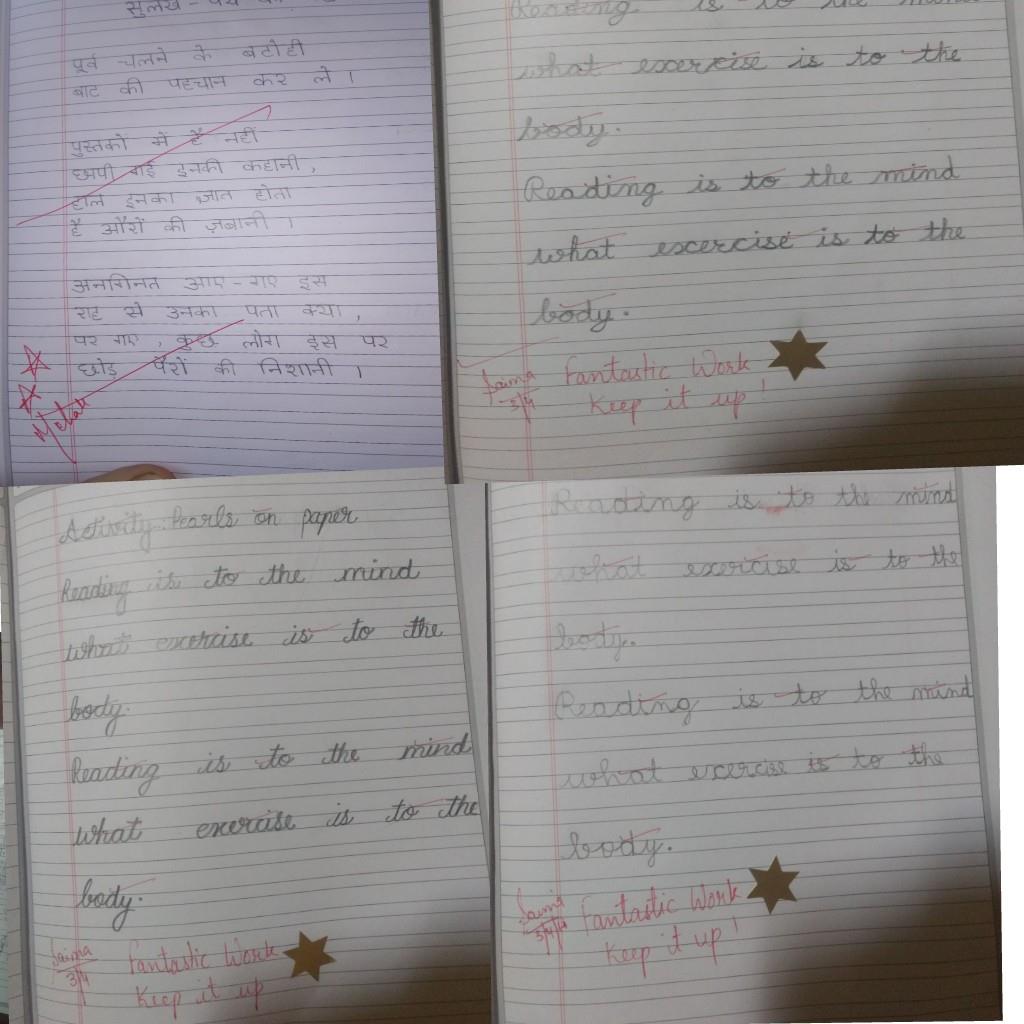 सुलेख - पथ की
पूर्व चलने के बटोही
बाट की पहचान कर ले ।
पुस्तकों में है नहीं
छापी गई इनकी कहानी ,
हाल इनका ज्ञात होता
है औरों की ज़बानी ।
अनगिनत आए - गए इस
राह से उनका पता क्या ,
पर गए , कुछ लोग इस पर
छोड़ पैरों की निशानी ।
Reading is to the mind
what excercise is to the
body.
Reading is to the mind
what excercise is to the
body.
Saima
3/4
Fantastic Work
Keep it up !
Activity: Pearls on paper
Reading is to the mind
what exercise is to the
body.
Reading is to the mind
what exercise is to the
body.
Saima
3/4
Fantastic Work
Keep it up
Reading is to the mind
what exercise is to the
body.
Reading is to the mind
what exercise is to the
body.
Saima
3/4
Fantastic Work
Keep it up !